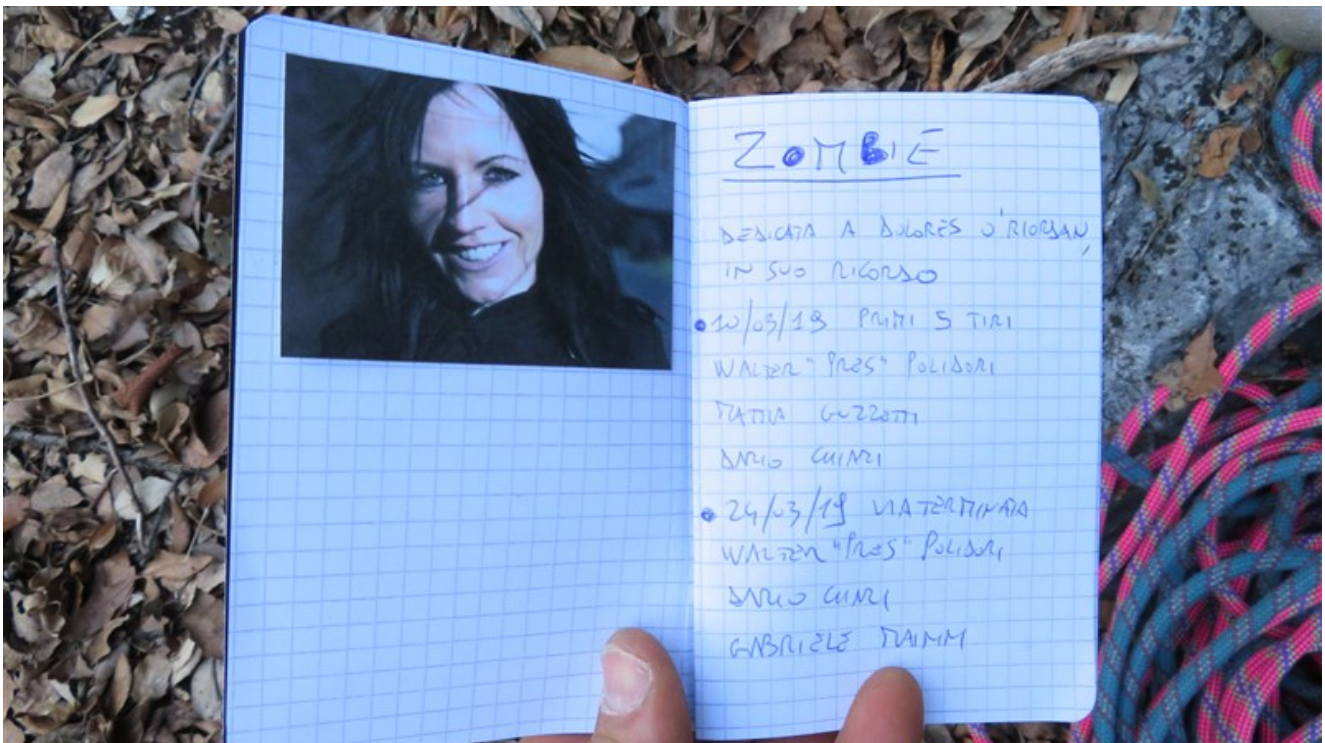 ZOMBIE
DEDICATA A DOLORES O'RIORDAN,
IN SUO RICORDO
10/03/19 PRIMI 5 TIRI
WALTER "PRES" POLIDORI
MATTIA GUZZETTI
DARIO CHIARI
24/03/19 VIA TERMINATA
WALTER "PRES" POLIDORI
DARIO CHIARI
GABRIELE